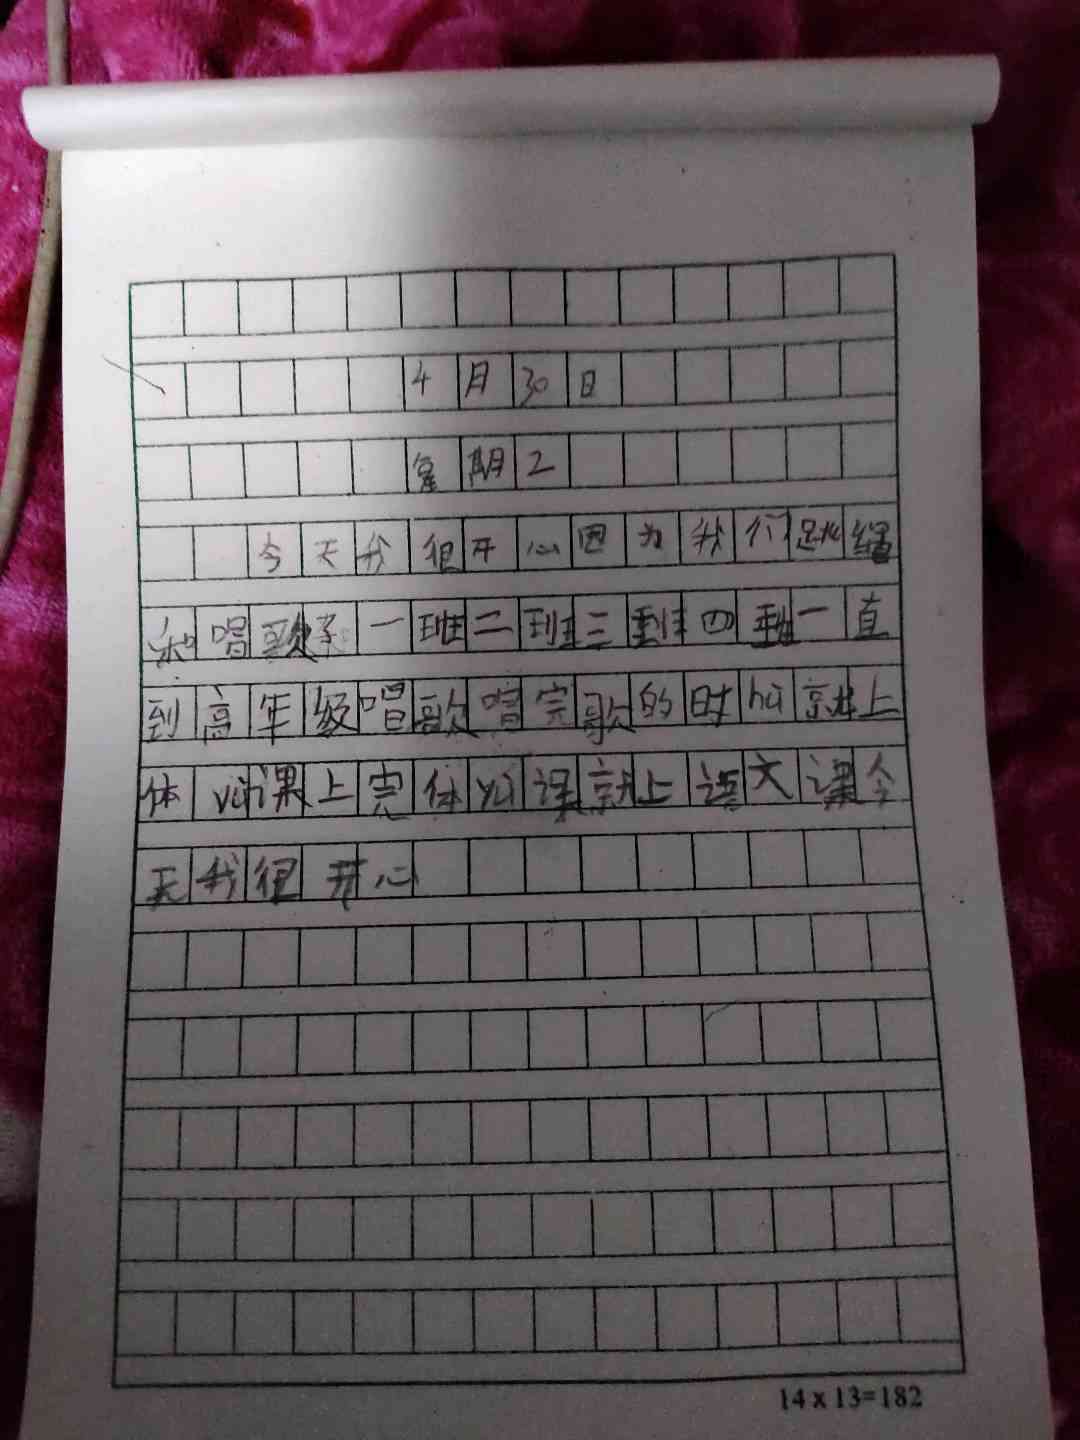 4月30日
星期2
今天我很开心因为我们跳绳
和唱歌 一班二班三班四班一直
到高年级唱歌唱完歌的时hù就上
体yù课上完体yù课就上语文课今
天我很开心
14 x 13=182